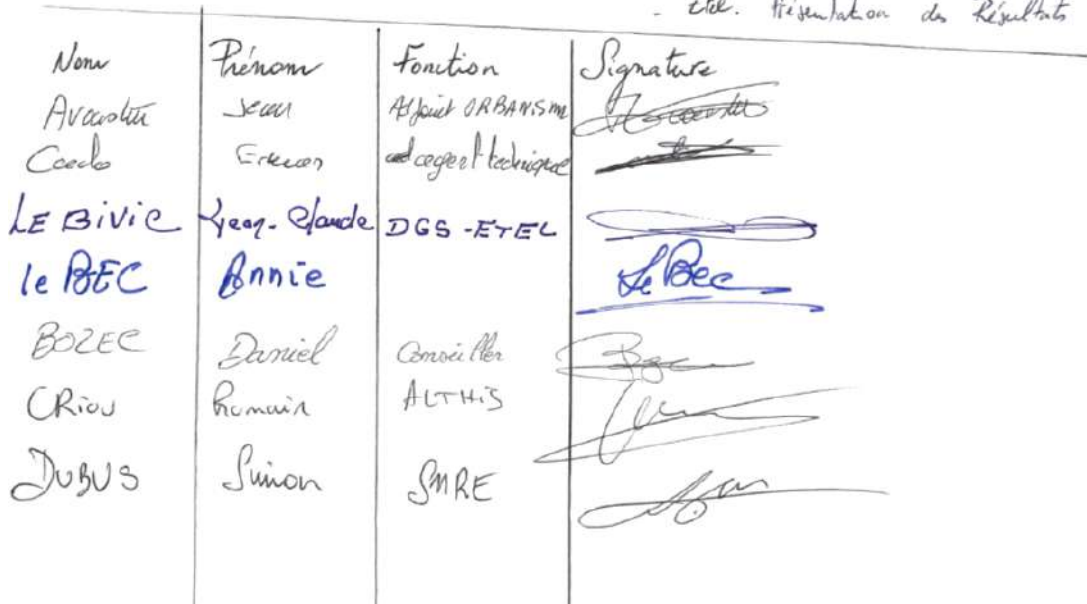 - Etel. Présentation des Résultats
Nom Prénom Fonction Signature
Jean Adjoint URBANISM
agent technique
LE BIVIC Jean-Claude DGS - ETEL
le BEC Annie Le Bec
BOZEC Daniel Conseiller
CRIOU Romain ALTHIS
DUBUS Simon SMRE